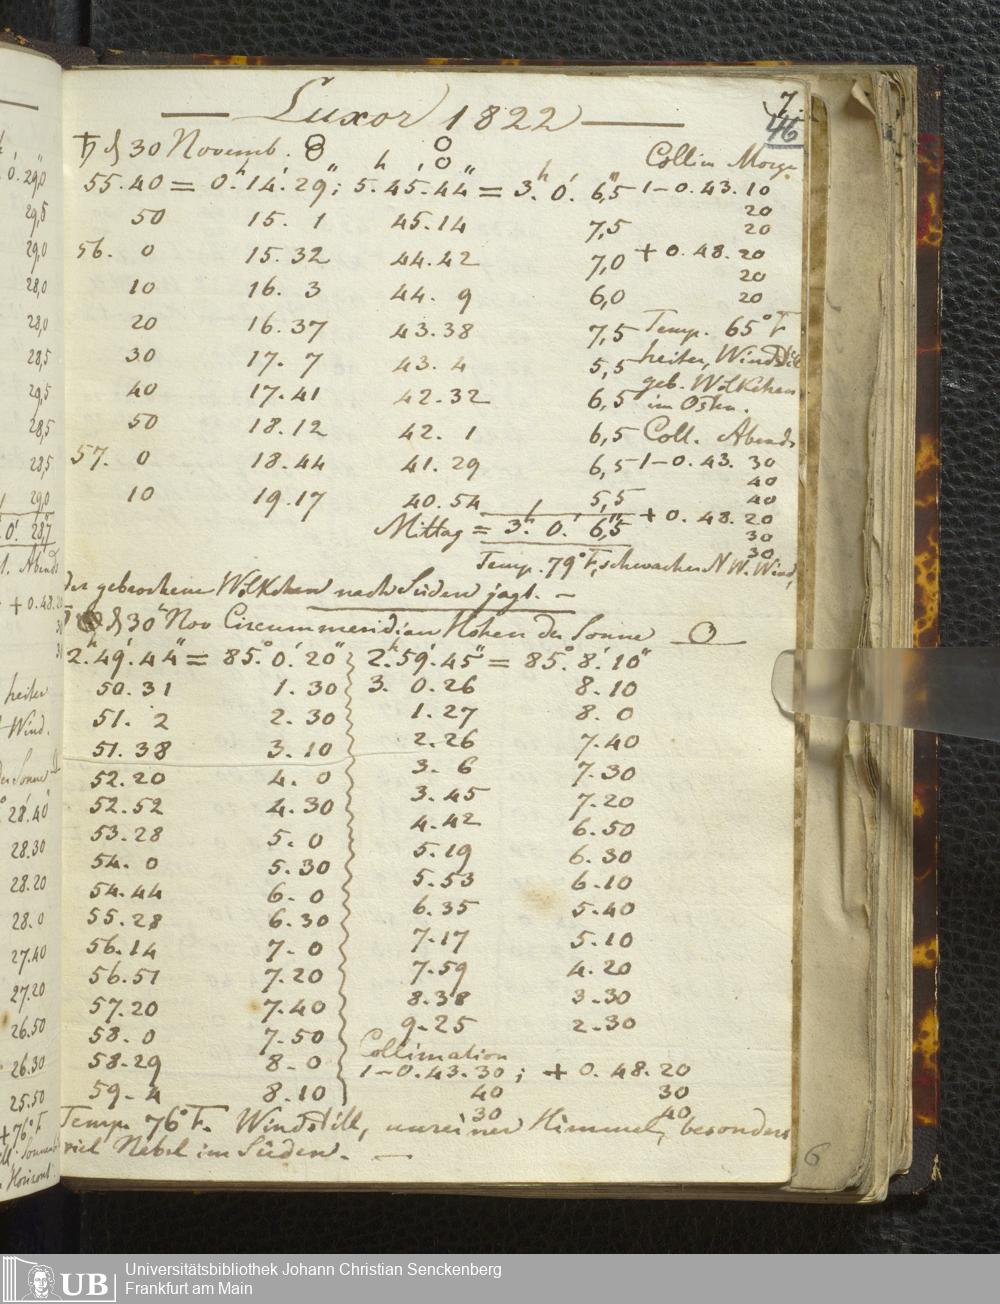 Luxor 1822
7.
46
♄ d 30 Novemb.
Coll im Morg.
55.40 = 0h.14'.29"; 5.h45'.44" = 3h.0'.6,"5 1-0.43.10
50 15. 1 45.14 7,5 20
20
56. 0 15.32 44.42 7,0 + 0.48.20
20
10 16. 3 44. 9 6,0 20
20 16.37 43.38 7,5 Temp. 65° F
30 17. 7 43. 4 5,5 heiter, Windstil
40 17.41 42.32 6,5 geb. Wölkchen
im Osten.
50 18.12 42. 1 6,5 Coll. Abends
57. 0 18.44 41.29 6,5 1-0.43. 30
40
10 19.17 40.54 5,5 40
Mittag = 3h. 0.' 6,"5 + 0.48.20
30
30
Temp. 79° F, schwacher N W. Wind,
der gebrochene Wölkchen nach Süden jagt. —
d 30' Nov Circummeridian Höhen der Sonne O
2.h49'.44" = 85.°0.'20" 2.h59'.45" = 85.°8.'10"
50.31 1.30 3. 0.26 8.10
51. 2 2.30 1.27 8. 0
51.38 3.10 2.26 7.40
52.20 4. 0 3. 6 7.30
52.52 4.30 3.45 7.20
53.28 5. 0 4.42 6.50
54. 0 5.30 5.19 6.30
54.44 6. 0 5.53 6.10
55.28 6.30 6.35 5.40
56.14 7. 0 7.17 5.10
56.51 7.20 7.59 4.20
57.20 7.40 8.38 3.30
58. 0 7.50 9.25 2.30
58.29 8. 0 Collimation
59. 4 8.10 1-0.43.30; + 0.48.20
40 30
30 40
Temp. 76° F. Windstill, unreiner Himmel, besonders
viel Nebel im Süden. —
6
0.29,0
29,5
29,0
28,0
28,0
28,5
29,5
28,5
28,5
29,0
0.' 28,"7
Abends
+ 0.48.
heiter
Wind.
28.'40"
28.30
28.20
28.0
27.40
27.20
26.50
26.30
25.50
+76° F
Horizont.
UB Universitätsbibliothek Johann Christian Senckenberg
Frankfurt am Main